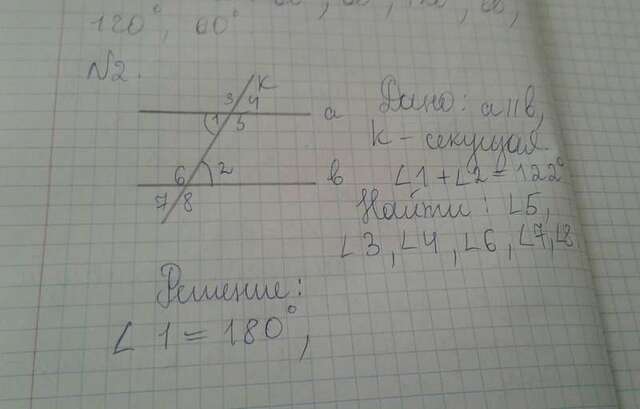 120°, 60°
№2.
К
3 4
1 5
а
6 2
в
7 8
Дано: а||в,
К – секущая.
∠1+∠2=122°
Найти: ∠5,
∠3, ∠4, ∠6, ∠7, ∠8
Решение:
∠ 1 = 180°,